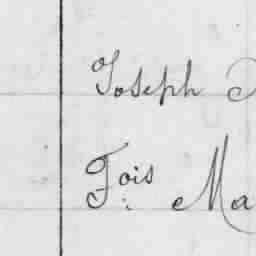 Joseph
Fois Ma